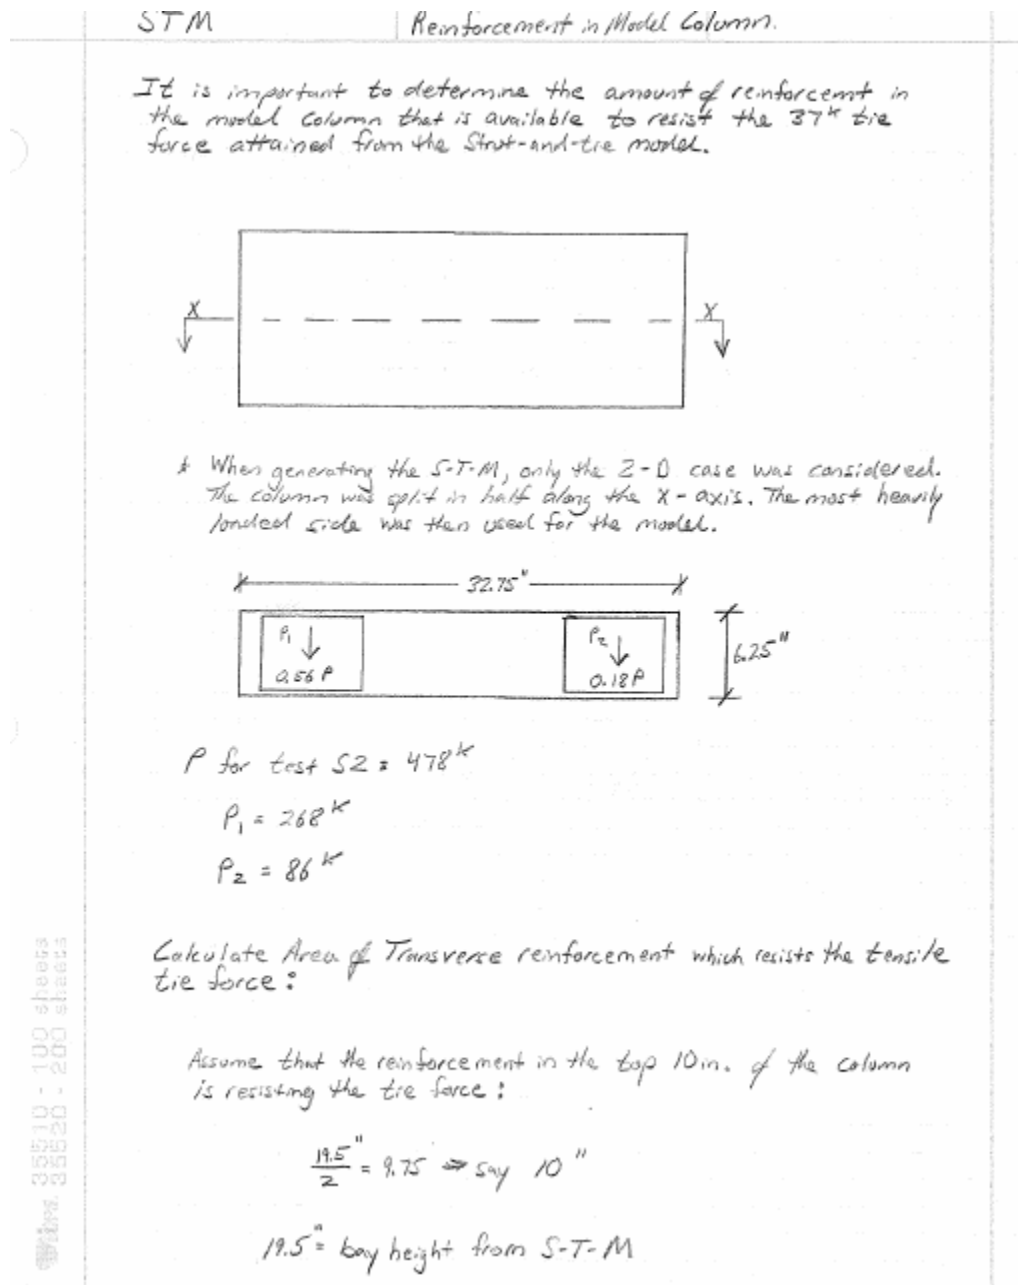 STM Reinforcement in Model Column.
It is important to determine the amount of reinforcemt in
the model column that is available to resist the 37ᵏ tie
force attained from the Strut-and-tie model.
X X
* When generating the S-T-M, only the 2-D case was considered.
The column was split in half along the x-axis. The most heavily
loaded side was then used for the model.
32.75"
P₁ P₂
6.25"
0.56 P 0.18P
P for test S2 = 478ᵏ
P₁ = 268ᵏ
P₂ = 86ᵏ
Calculate Area of Transverse reinforcement which resists the tensile
tie force:
Assume that the reinforcement in the top 10in. of the column
is resisting the tie force:
19.5"/2 = 9.75 ⇒ say 10"
19.5" = bay height from S-T-M
35510 - 100 sheets
35520 - 200 sheets